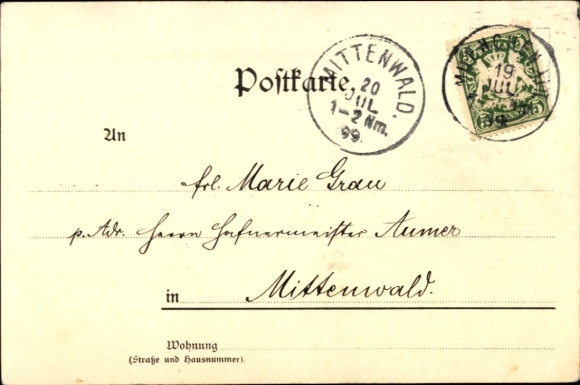 Postkarte.
MITTENWALD.
20
JUL.
1-2 Nm.
99.
19
JUL
99
5
An
Frl. Marie Grau
p. Adr. Herrn Hafnermeister Aumer
in Mittenwald.
Wohnung
(Straße und Hausnummer).